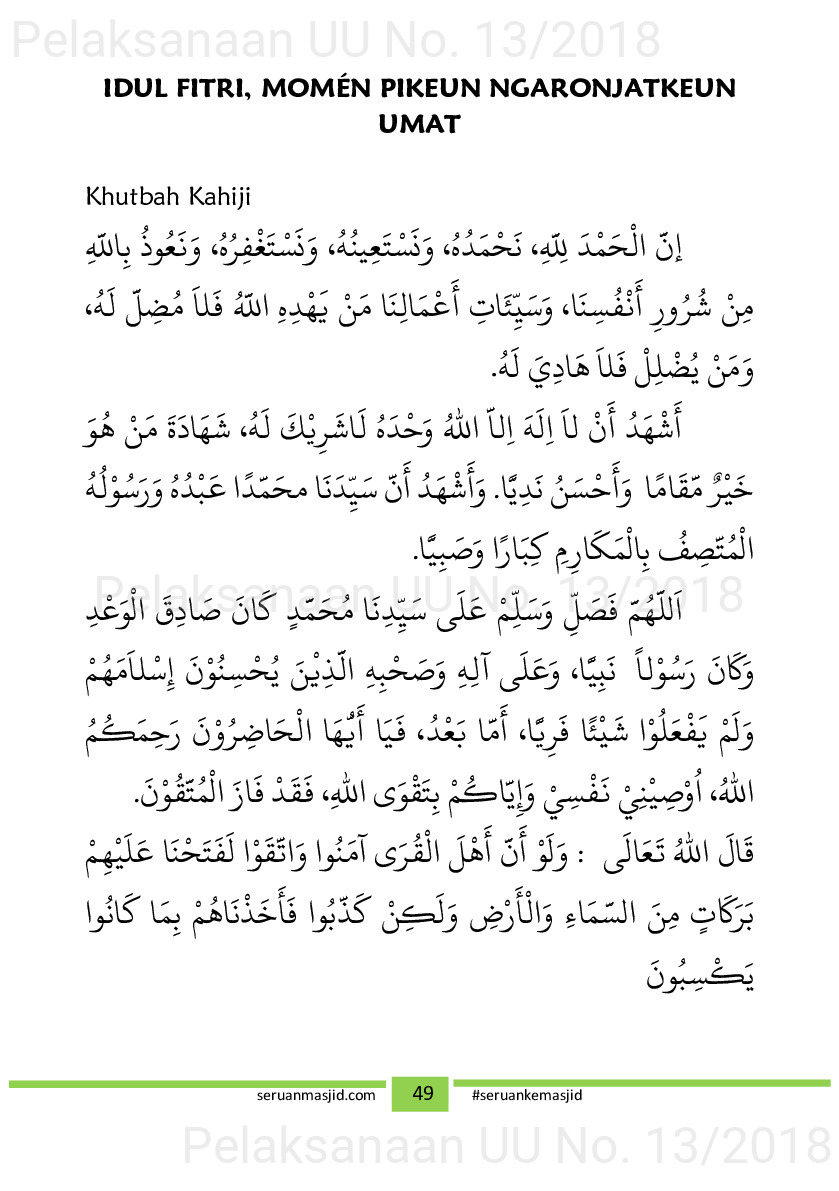 Pelaksanaan UU No. 13/2018
IDUL FITRI, MOMÉN PIKEUN NGARONJATKEUN
UMAT
Khutbah Kahiji
إنّ الْحَمْدَ لِلّهِ، نَحْمَدُهُ، وَنَسْتَعِينُهُ، وَنَسْتَغْفِرُهُ، وَنَعُوذُ بِاللّهِ
مِنْ شُرُورِ أَنْفُسِنَا، وَسَيِّئَاتِ أَعْمَالِنَا مَنْ يَهْدِهِ اللّهُ فَلاَ مُضِلّ لَهُ،
وَمَنْ يُضْلِلْ فَلاَ هَادِيَ لَهُ.
أَشْهَدُ أَنْ لاَ اِلَهَ اِلاّ اللهُ وَحْدَهُ لَاشَرِيْكَ لَهُ، شَهَادَةَ مَنْ هُوَ
خَيْرٌ مّقَامًا وَأَحْسَنُ نَدِيَّا. وَأَشْهَدُ أَنّ سَيِّدَنَا محَمّدًا عَبْدُهُ وَرَسُوْلُهُ
الْمُتّصِفُ بِالْمَكَارِمِ كِبَارًا وَصَبِيَّا.
Pelaksanaan UU No. 13/2018
اَللّهُمّ فَصَلِّ وَسَلِّمْ عَلَى سَيِّدِنَا مُحَمّدٍ كَانَ صَادِقَ الْوَعْدِ
وَكَانَ رَسُوْلاً نَبِيَّا، وَعَلَى آلِهِ وَصَحْبِهِ الّذِيْنَ يُحْسِنُوْنَ إِسْلاَمَهُمْ
وَلَمْ يَفْعَلُوْا شَيْئًا فَرِيَّا، أَمّا بَعْدُ، فَيَا أَيُّهَا الْحَاضِرُوْنَ رَحِمَكُمُ
اللهُ، اُوْصِيْنِيْ نَفْسِيْ وَإِيّاكُمْ بِتَقْوَى اللهِ، فَقَدْ فَازَ الْمُتّقُوْنَ.
قَالَ اللهُ تَعَالَى : وَلَوْ أَنّ أَهْلَ الْقُرَى آمَنُوا وَاتّقَوْا لَفَتَحْنَا عَلَيْهِمْ
بَرَكَاتٍ مِنَ السّمَاءِ وَالْأَرْضِ وَلَكِنْ كَذّبُوا فَأَخَذْنَاهُمْ بِمَا كَانُوا
يَكْسِبُونَ
seruanmasjid.com 49 #seruankemasjid
Pelaksanaan UU No. 13/2018